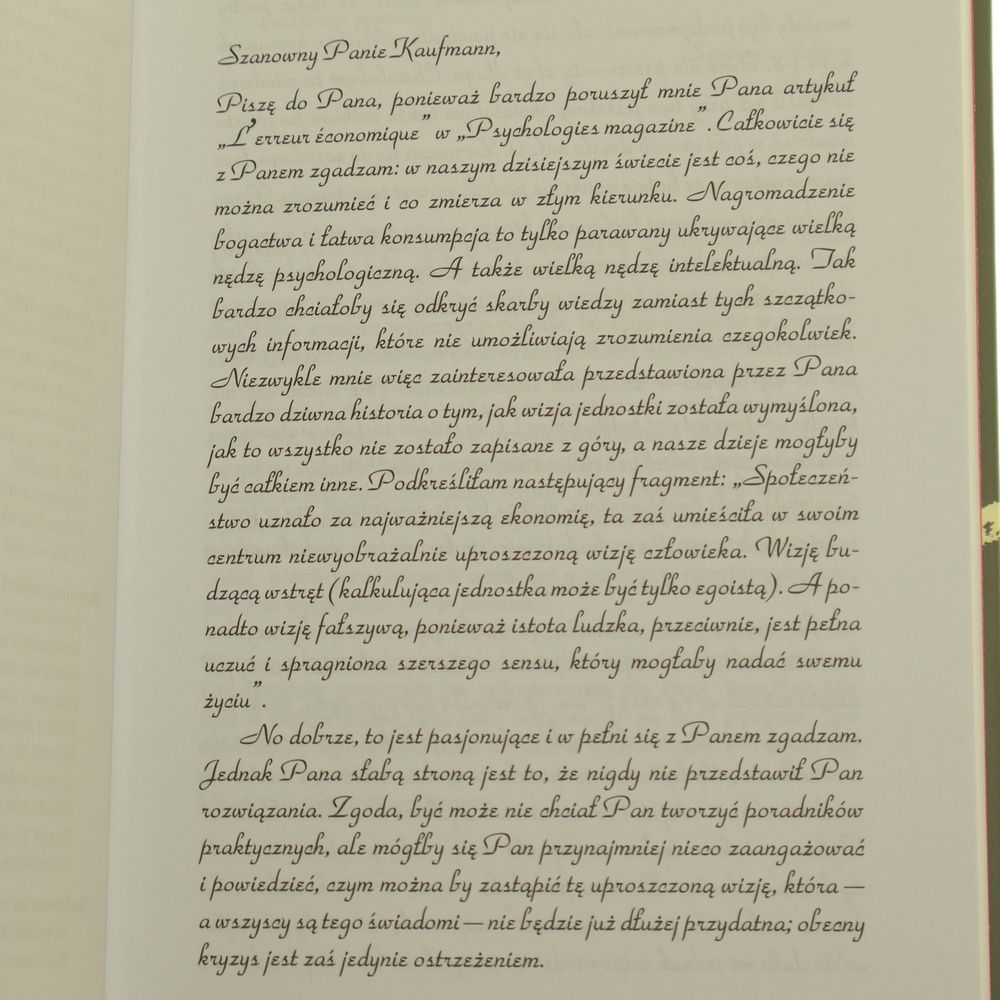 Szanowny Panie Kaufmann,
Piszę do Pana, ponieważ bardzo poruszył mnie Pana artykuł
„L’erreur économique” w „Psychologies magazine”. Całkowicie się
z Panem zgadzam: w naszym dzisiejszym świecie jest coś, czego nie
można zrozumieć i co zmierza w złym kierunku. Nagromadzenie
bogactwa i łatwa konsumpcja to tylko parawany ukrywające wielką
nędzę psychologiczną. A także wielką nędzę intelektualną. Tak
bardzo chciałoby się odkryć skarby wiedzy zamiast tych szczątko-
wych informacji, które nie umożliwiają zrozumienia czegokolwiek.
Niezwykle mnie więc zainteresowała przedstawiona przez Pana
bardzo dziwna historia o tym, jak wizja jednostki została wymyślona,
jak to wszystko nie zostało zapisane z góry, a nasze dzieje mogłyby
być całkiem inne. Podkreśliłam następujący fragment: „Społeczeń-
stwo uznało za najważniejszą ekonomię, ta zaś umieściła w swoim
centrum niewyobrażalnie uproszczoną wizję człowieka. Wizję bu-
dzącą wstręt (kalkulująca jednostka może być tylko egoistą). A po-
nadto wizję fałszywą, ponieważ istota ludzka, przeciwnie, jest pełna
uczuć i spragniona szerszego sensu, który mogłaby nadać swemu
życiu”.
No dobrze, to jest pasjonujące i w pełni się z Panem zgadzam.
Jednak Pana słabą stroną jest to, że nigdy nie przedstawił Pan
rozwiązania. Zgoda, być może nie chciał Pan tworzyć poradników
praktycznych, ale mógłby się Pan przynajmniej nieco zaangażować
i powiedzieć, czym można by zastąpić tę uproszczoną wizję, która —
a wszyscy są tego świadomi — nie będzie już dłużej przydatna; obecny
kryzys jest zaś jedynie ostrzeżeniem.